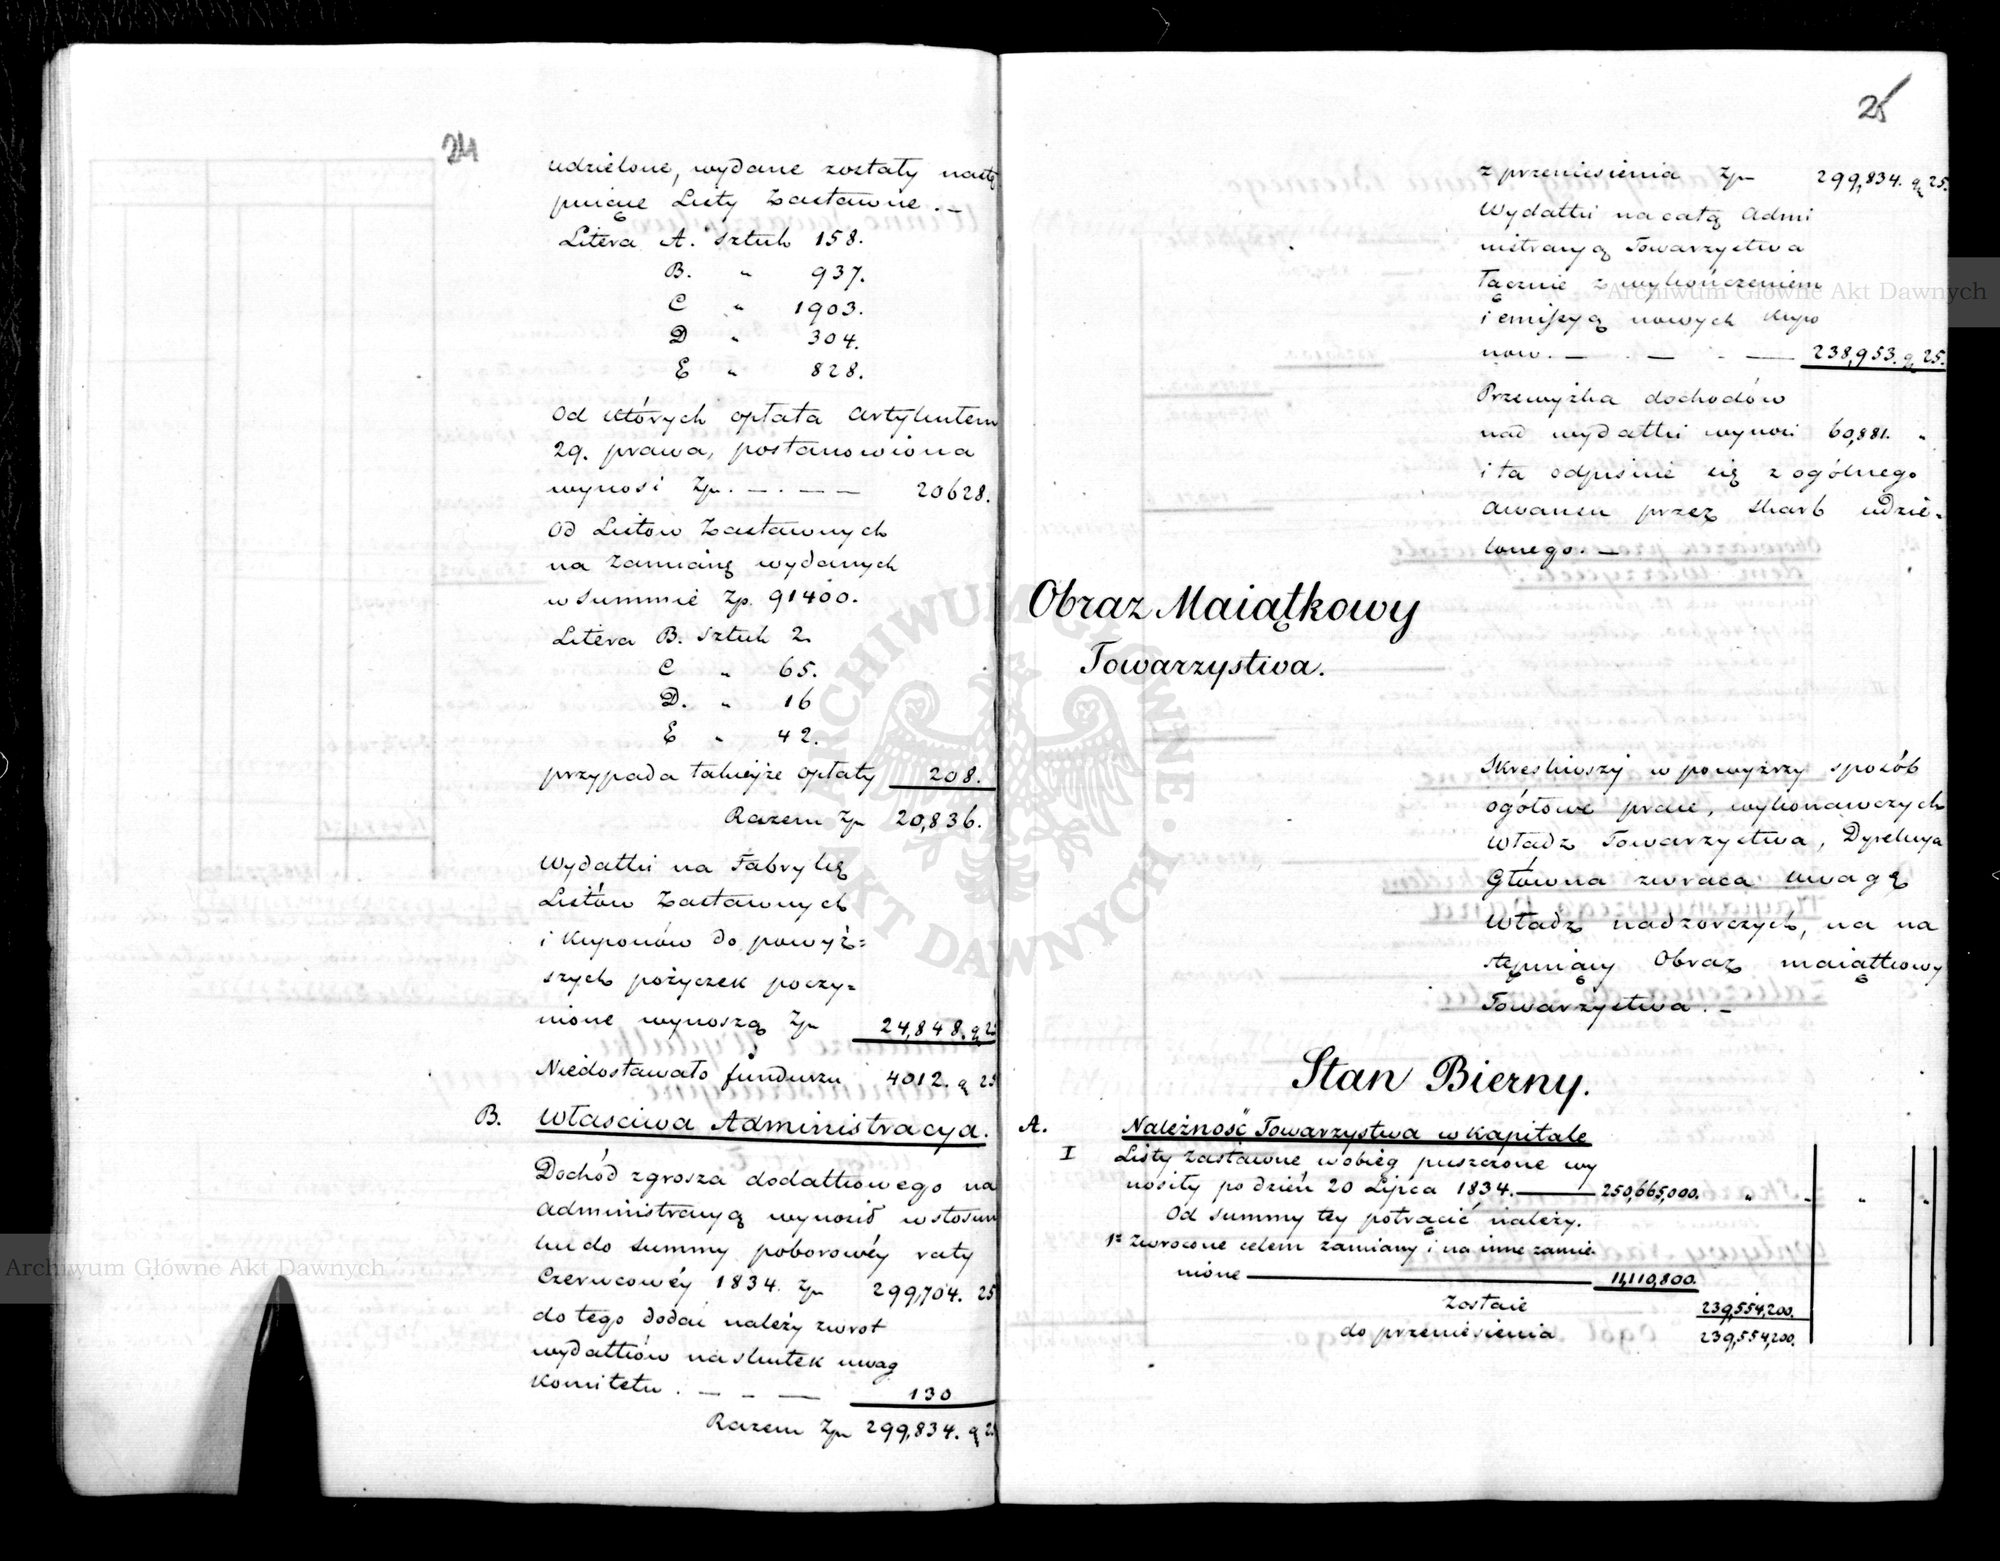 24
udzielone, wydane zostały nastę
puiące Listy Zastawne. –
Litera A. sztuk 158.
B. " 937.
C " 1903.
D " 304.
E " 828.
od których opłata artykułem
29. prawa, postanowiona
wynosi Zp. — . — — 20628.
od Listów Zastawnych
na zamianę wydanych
w summie Zp. 91400.
Litera B. sztuk 2.
C " 65.
D. " 16
E " 42.
przypada takiejże opłaty 208.
Razem Zp 20,836.
Wydatki na Fabrykę
Listów Zastawnych
i Kuponów do powyż=
szych pożyczek poczy=
nione wynoszą Zp 24,848. g 25
Niedostawało funduszu 4012. g 25
B. Własciwa Administracya.
Dochód z grosza dodatkowego na
administracyą wynosił w stosun
ku do summy poborowéy raty
Czerwcowéy 1834. Zp 299,704. 25
do tego dodać należy zwrot
wydatków na skutek uwag
Komitetu. — — — 130
Razem Zp 299,834. g 25
25
z przeniesienia Zp 299,834. g 25.
Wydatki na całą Admi
nistracyą Towarzystwa
łącznie z wykończeniem
i emissyą nowych Kupo
now. — . — . — 238,953. g 25.
Przewyżka dochodów
nad wydatki wynosi 60,881. "
i ta odpisuie się z ogólnego
awansu przez skarb udzie-
lonego. —
Obraz Maiątkowy
Towarzystwa.
Skreśliwszy w powyższy sposób
ogółowe prace, wykonawczych
Władz Towarzystwa, Dyrekcya
Główna zwraca uwagę
Władz nadzorczych, na na
stępuiący Obraz maiątkowy
Towarzystwa. –
Stan Bierny.
A. Należność Towarzystwa w Kapitale
I Listy Zastawne w obieg puszczone wy
nosiły po dzień 20 Lipca 1834. — 250,665,000. " - " -
Od summy tey potrącić należy.
1º zwrocone celem zamiany i na inne zamie-
nione — 11,110,800.
Zostaie 239,554,200.
do przeniesienia 239,554,200.
Archiwum Główne Akt Dawnych
Archiwum Główne Akt Dawnych
ARCHIWUM GŁÓWNE · AKT DAWNYCH ·